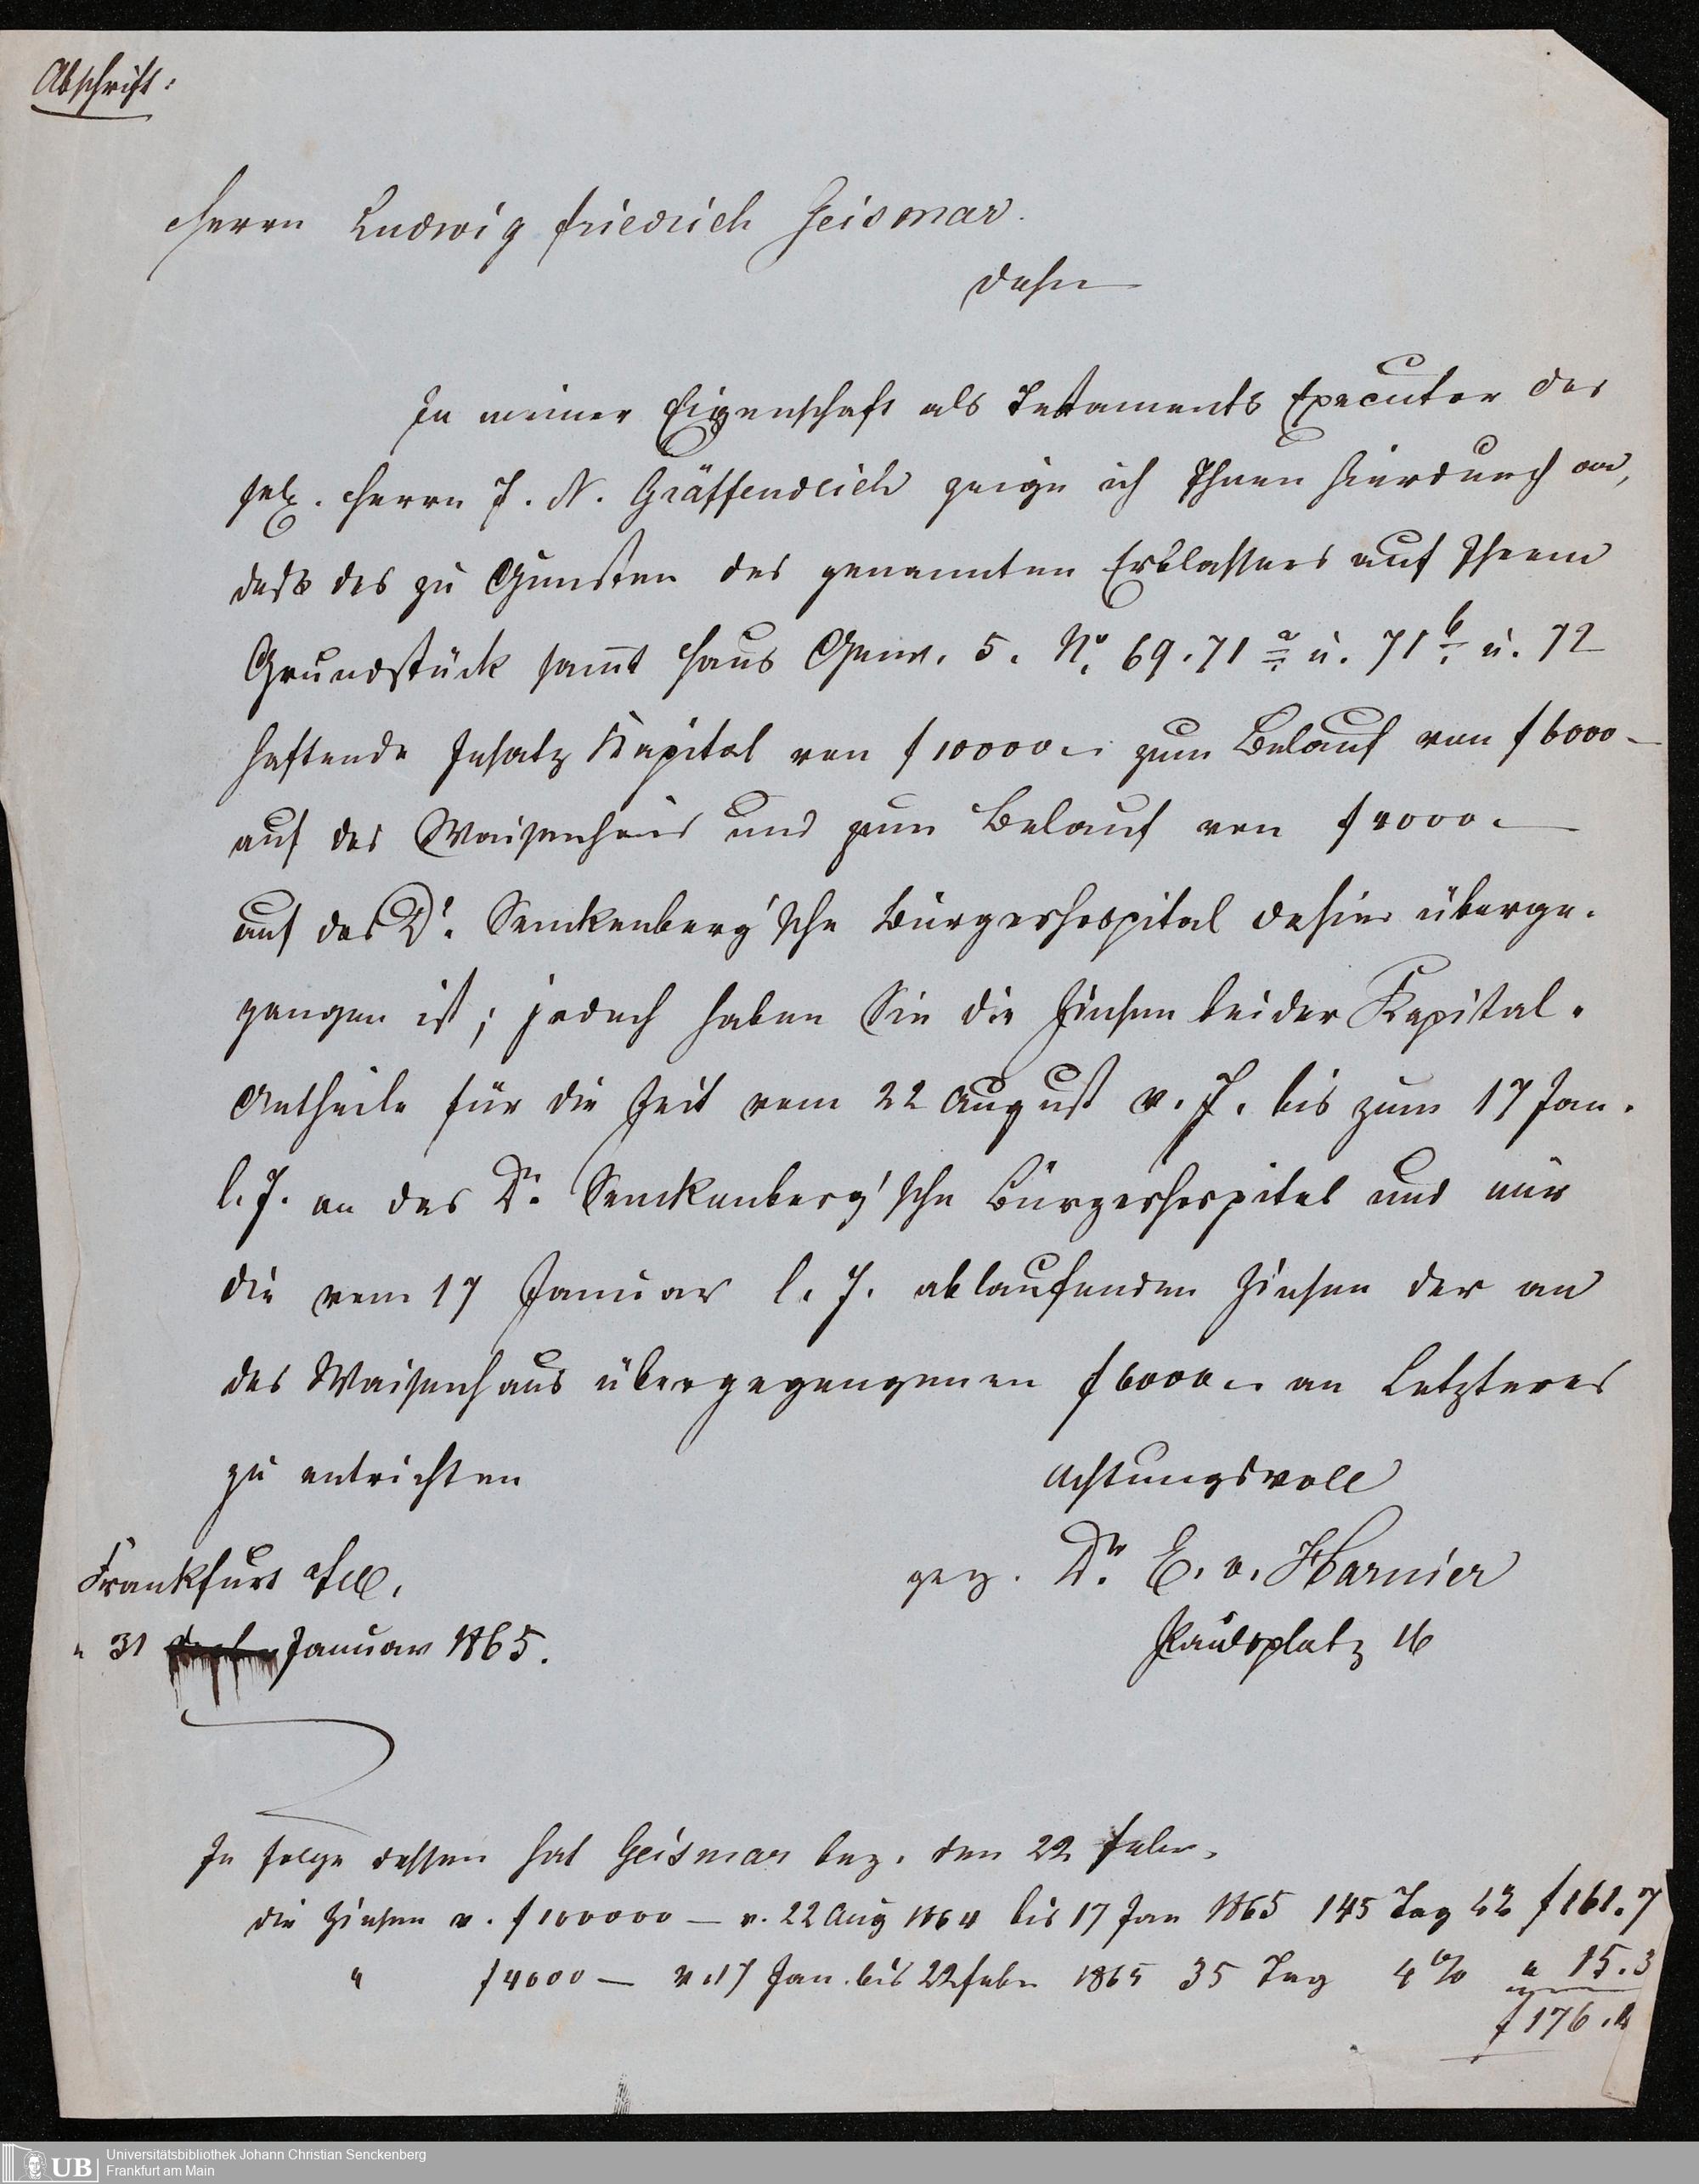 Abschrift:
Herrn Ludwig Friedrich Geismar.
dahier
In meiner Eigenschaft als Testaments Executor des
sel. Herrn J. N. Gräffendeich zeige ich Ihnen hierdurch an,
daß das zu Gunsten des genannten Erblassers auf Ihrem
Grundstück sammt Haus Gew. 5. No. 69. 71 a u. 71 b u. 72
haftende Insatz Kapital von f 10000.— zum Belauf von f 6000—
auf das Waisenhaus und zum Belauf von f 4000.—
auf das Dr. Senckenberg'sche Bürgerhospital dahier überge-
gangen ist; jedoch haben Sie die Zinsen beider Kapital-
Antheile für die Zeit vom 22 August v. J. bis zum 17 Jan.
l. J. an das Dr. Senckenberg'sche Bürgerhospital und nur
die vom 17 Januar l. J. ablaufenden Zinsen der an
das Waisenhaus übergegangenen f 6000.— an Letzteres
zu entrichten
Achtungsvoll
Frankfurt a/M.
gez. Dr. E. v. Harnier
" 31 Januar 1865.
Paulsplatz 16
In Folge dessen hat Geismar bez. den 22 Febr.
die Zinsen v. f 100000— v. 22 Aug 1864 bis 17 Jan 1865 145 Tag f 161.7
" f 4000— v. 17 Jan. bis 22 Febr 1865 35 Tag 4% " 15.3
f 176.
Universitätsbibliothek Johann Christian Senckenberg
UB Frankfurt am Main